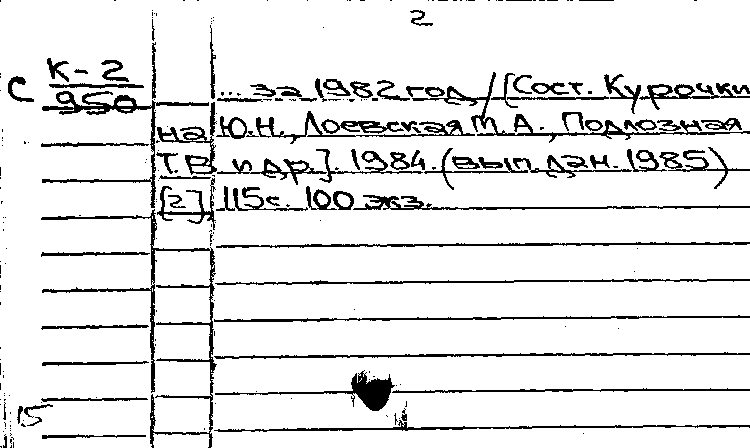 2
С К-2
950
... за 1982 год / [Сост. Курочки
на Ю.Н., Лоевская М.А., Подлозная
Т.В. и др.]. 1984. (вып. дан. 1985)
[2], 115с. 100 экз.
15